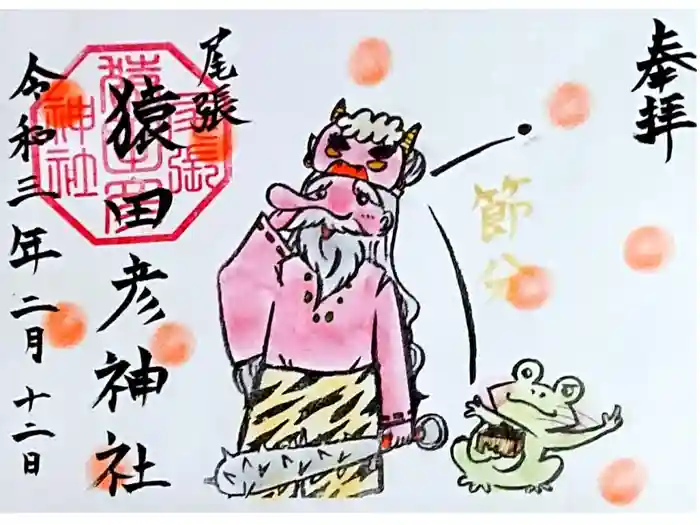 奉拝
節分
尾張
猿田彦神社
令和三年二月十二日